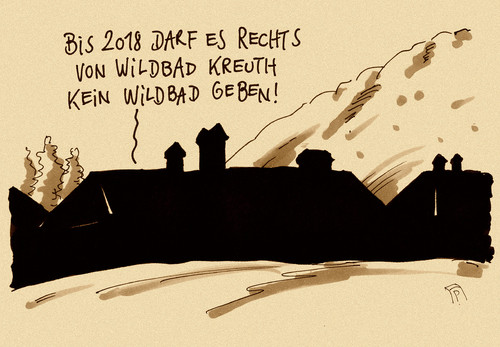 BIS 2018 DARF ES RECHTS
VON WILDBAD KREUTH
KEIN WILDBAD GEBEN!